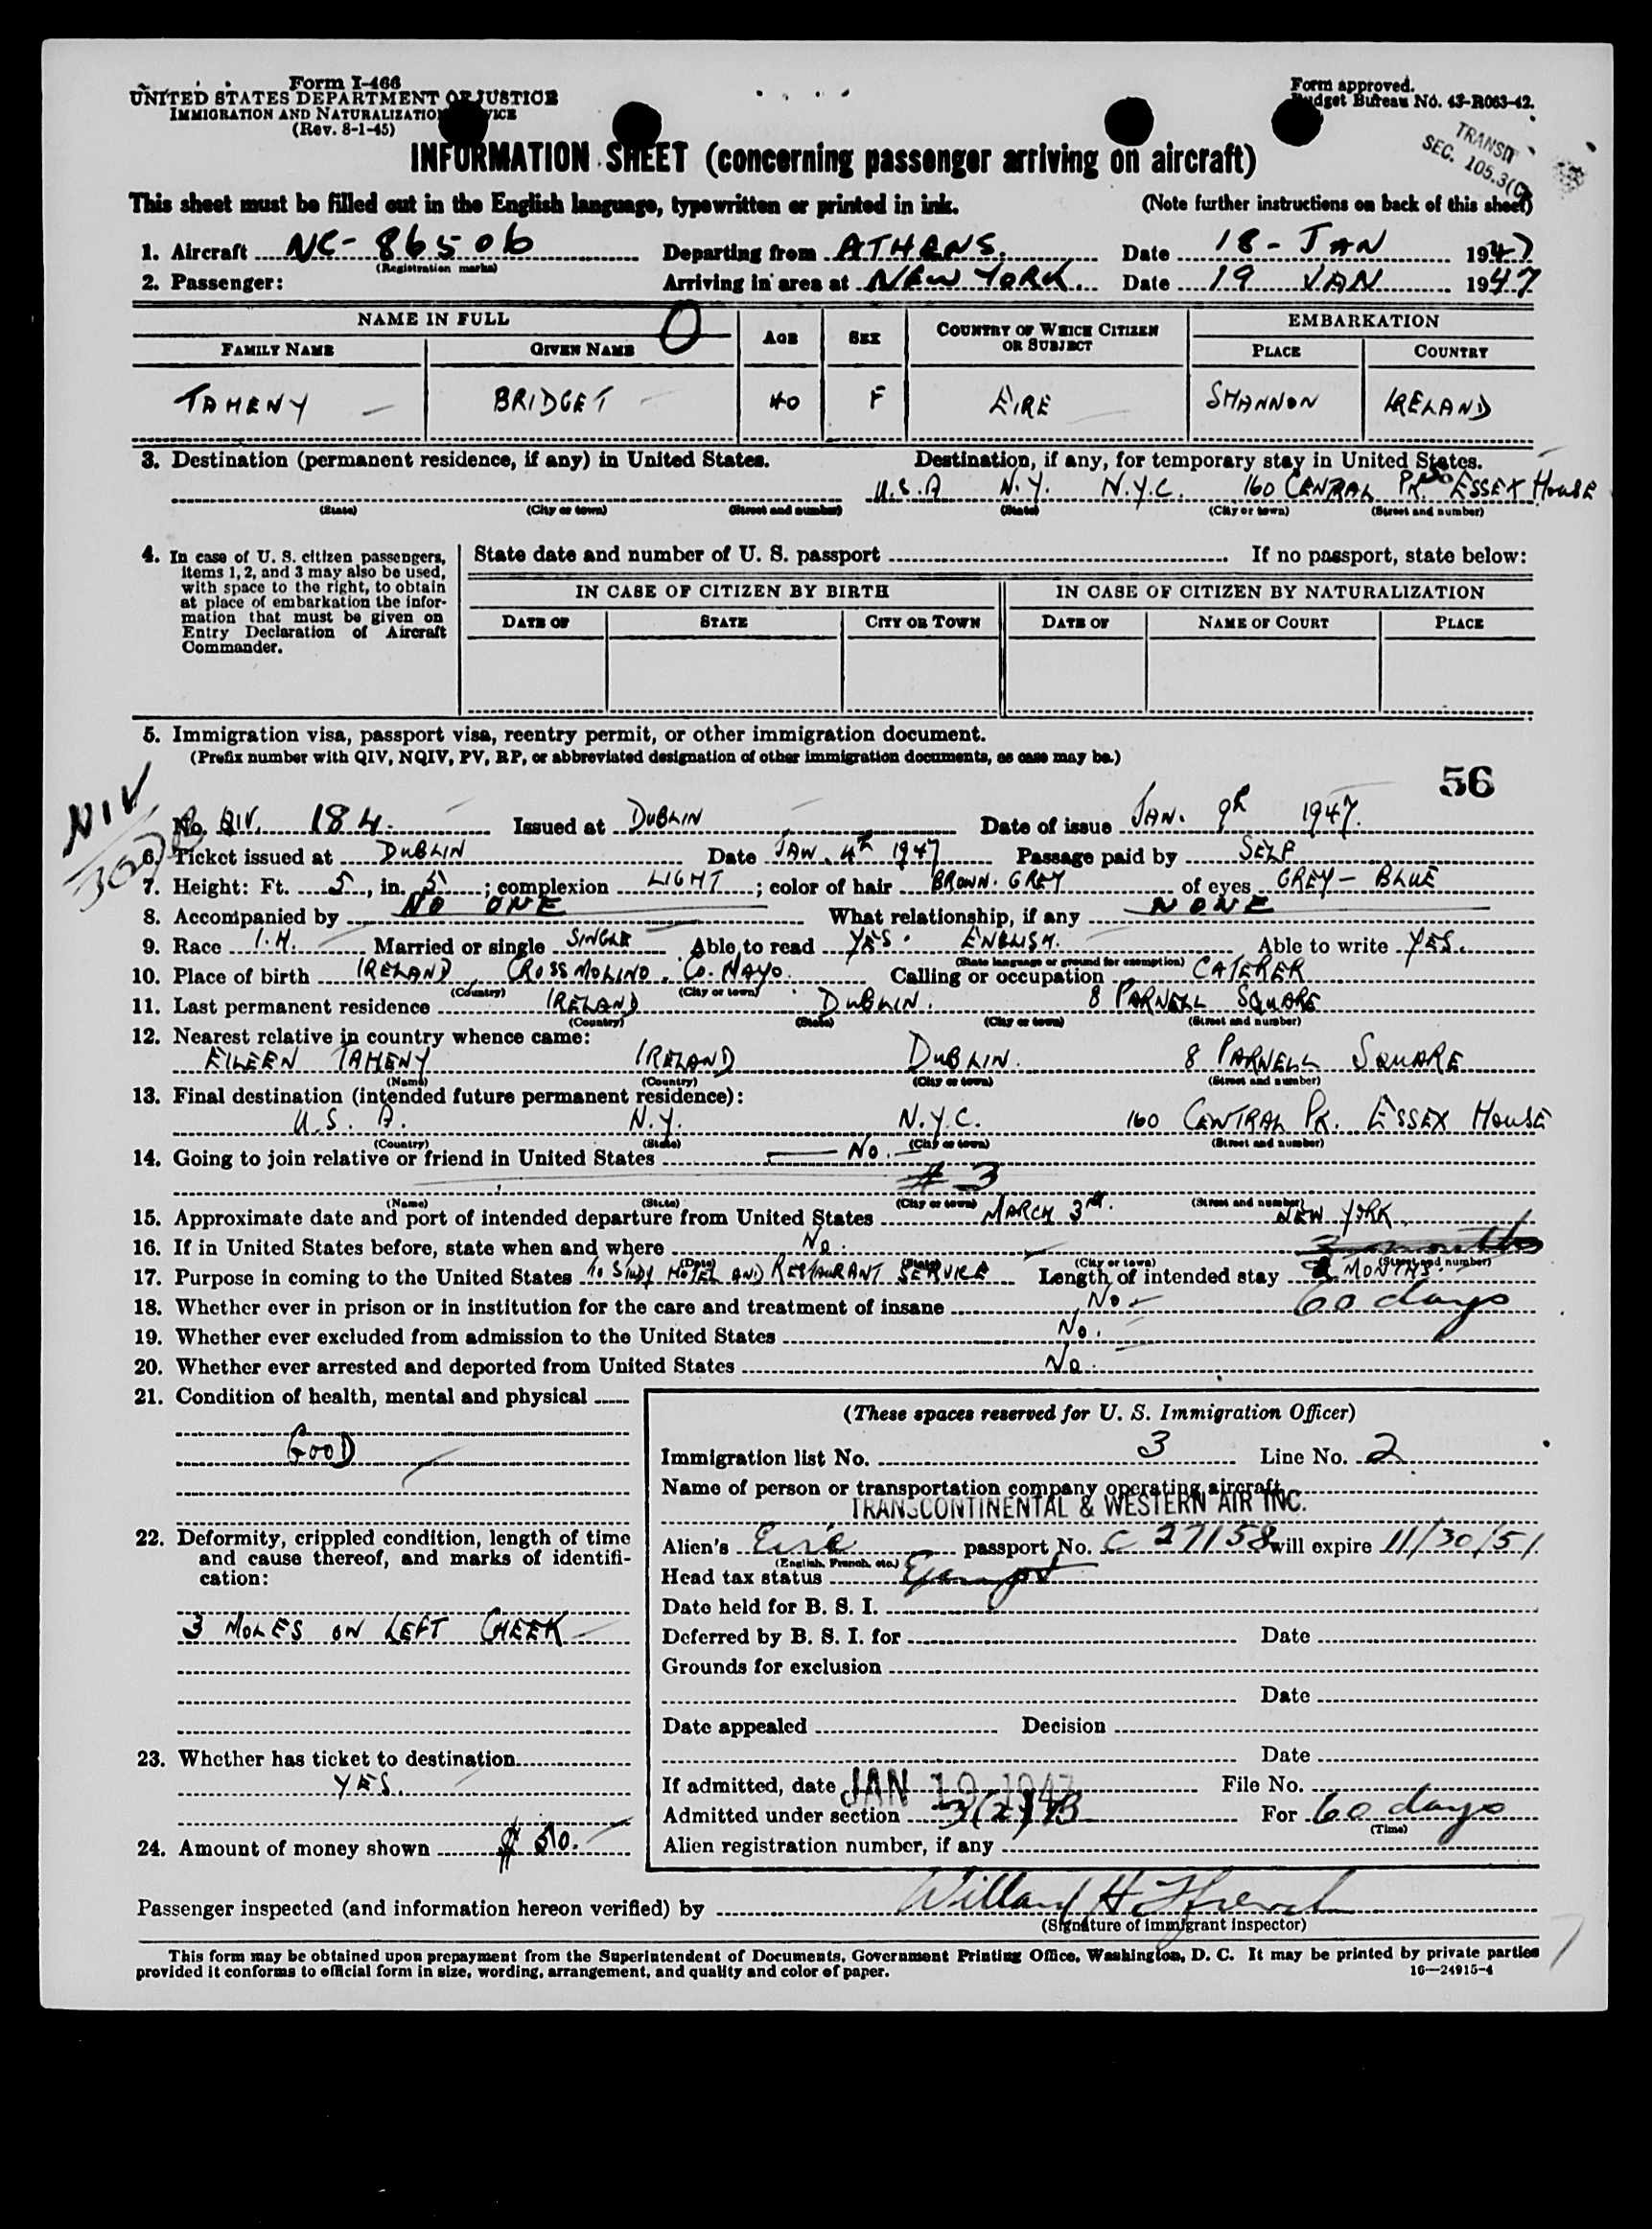 Form I-466
UNITED STATES DEPARTMENT OF JUSTICE
IMMIGRATION AND NATURALIZATION SERVICE
(Rev. 8-1-45)
Form approved.
Budget Bureau No. 43-R063-42.
TRANSIT
SEC. 105.3(C)
INFORMATION SHEET (concerning passenger arriving on aircraft)
This sheet must be filled out in the English language, typewritten or printed in ink. (Note further instructions on back of this sheet)
1. Aircraft NC-86506 Departing from ATHENS. Date 18-JAN 1947
(Registration marks)
2. Passenger: Arriving in area at NEW YORK. Date 19 JAN 1947
NAME IN FULL O AGE SEX COUNTRY OF WHICH CITIZEN OR SUBJECT EMBARKATION
FAMILY NAME GIVEN NAME PLACE COUNTRY
TAHENY BRIDGET 40 F EIRE SHANNON IRELAND
3. Destination (permanent residence, if any) in United States. Destination, if any, for temporary stay in United States.
U.S.A N.Y. N.Y.C. 160 CENTRAL PK. So ESSEX HOUSE
(State) (City or town) (Street and number) (State) (City or town) (Street and number)
4. In case of U. S. citizen passengers, items 1, 2, and 3 may also be used, with space to the right, to obtain at place of embarkation the information that must be given on Entry Declaration of Aircraft Commander.
State date and number of U. S. passport If no passport, state below:
IN CASE OF CITIZEN BY BIRTH IN CASE OF CITIZEN BY NATURALIZATION
DATE OF STATE CITY OR TOWN DATE OF NAME OF COURT PLACE
5. Immigration visa, passport visa, reentry permit, or other immigration document.
(Prefix number with QIV, NQIV, PV, RP, or abbreviated designation of other immigration documents, as case may be.)
56
NIV
No. QIV. 184. Issued at DUBLIN Date of issue JAN. 9th 1947.
6. Ticket issued at DUBLIN Date JAN. 4th 1947 Passage paid by SELF
7. Height: Ft. 5, in. 5; complexion LIGHT; color of hair BROWN. GREY of eyes GREY-BLUE
8. Accompanied by NO ONE What relationship, if any NONE
9. Race I.H. Married or single SINGLE Able to read YES. ENGLISH. Able to write YES.
(State language or ground for exemption)
10. Place of birth IRELAND CROSSMOLINO. Co. MAYO. Calling or occupation CATERER
(Country) (City or town)
11. Last permanent residence IRELAND DUBLIN. 8 PARNELL SQUARE
(Country) (State) (City or town) (Street and number)
12. Nearest relative in country whence came:
EILEEN TAHENY IRELAND DUBLIN. 8 PARNELL SQUARE
(Name) (Country) (City or town) (Street and number)
13. Final destination (intended future permanent residence):
U.S.A. N.Y. N.Y.C. 160 CENTRAL PK. ESSEX HOUSE
(Country) (State) (City or town) (Street and number)
14. Going to join relative or friend in United States No.
# 3
(Name) (State) (City or town) (Street and number)
15. Approximate date and port of intended departure from United States MARCH 3rd. NEW YORK
16. If in United States before, state when and where No. 3 months
(Date) (State) (City or town) (Street and number)
17. Purpose in coming to the United States TO STUDY HOTEL AND RESTAURANT SERVICE Length of intended stay 2 MONTHS.
18. Whether ever in prison or in institution for the care and treatment of insane No 60 days
19. Whether ever excluded from admission to the United States No.
20. Whether ever arrested and deported from United States No.
21. Condition of health, mental and physical
GOOD
22. Deformity, crippled condition, length of time and cause thereof, and marks of identification:
3 MOLES ON LEFT CHEEK
23. Whether has ticket to destination
YES.
24. Amount of money shown $ 50.
(These spaces reserved for U. S. Immigration Officer)
Immigration list No. 3 Line No. 2
Name of person or transportation company operating aircraft
TRANSCONTINENTAL & WESTERN AIR INC.
Alien's Eire passport No. C 27158 will expire 11/30/51.
(English, French, etc.)
Head tax status Exempt
Date held for B. S. I.
Deferred by B. S. I. for Date
Grounds for exclusion
Date
Date appealed Decision
Date
If admitted, date JAN 19 1947 File No.
Admitted under section 3(2) B For 60 days
(Time)
Alien registration number, if any
Passenger inspected (and information hereon verified) by Willard H
(Signature of immigrant inspector)
This form may be obtained upon prepayment from the Superintendent of Documents, Government Printing Office, Washington, D. C. It may be printed by private parties
provided it conforms to official form in size, wording, arrangement, and quality and color of paper. 16—24915-4